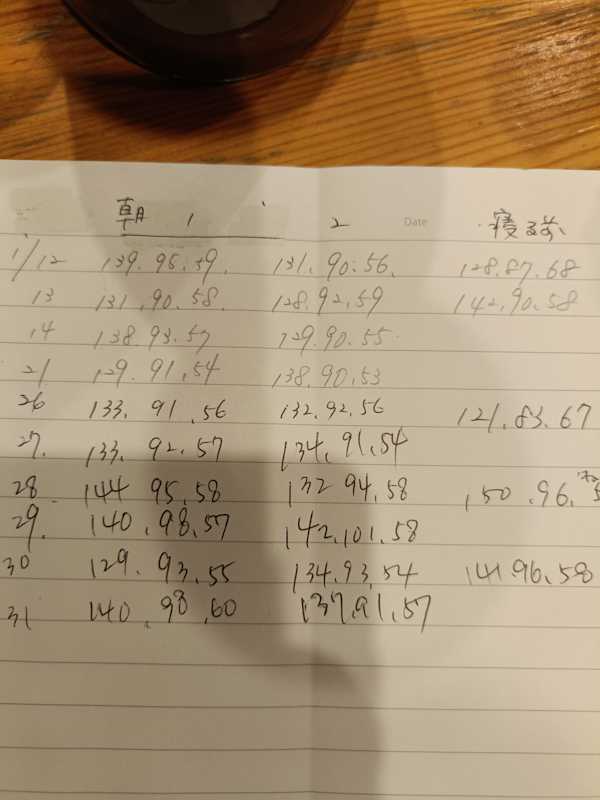 朝 1 2 Date 寝る前
1/12 139.95.59. 131.90.56. 128.87.68
13 131.90.58. 128.92.59 142.90.58
14 138.93.57 129.90.55.
21 129.91.54 138.90.53
26 133.91.56 132.92.56 121.83.67
27. 133.92.57 134.91.54
28 144 95.58 132 94.58 150.96.
29. 140.98.57 142.101.58
30 129.93.55 134.93.54 141.96.58
31 140.98.60 137.91.57